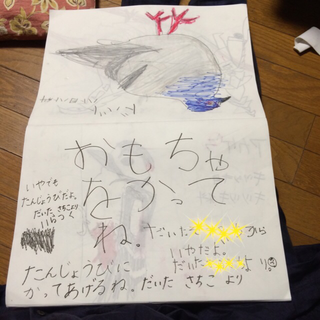 おもちゃ
をかって
ね。だいた
から
いやでも
たんじょうびだよ。
だいた さちこより
いやだよ。
だいた
より
たんじょうびに
かってあげるね。だいた さちこ より